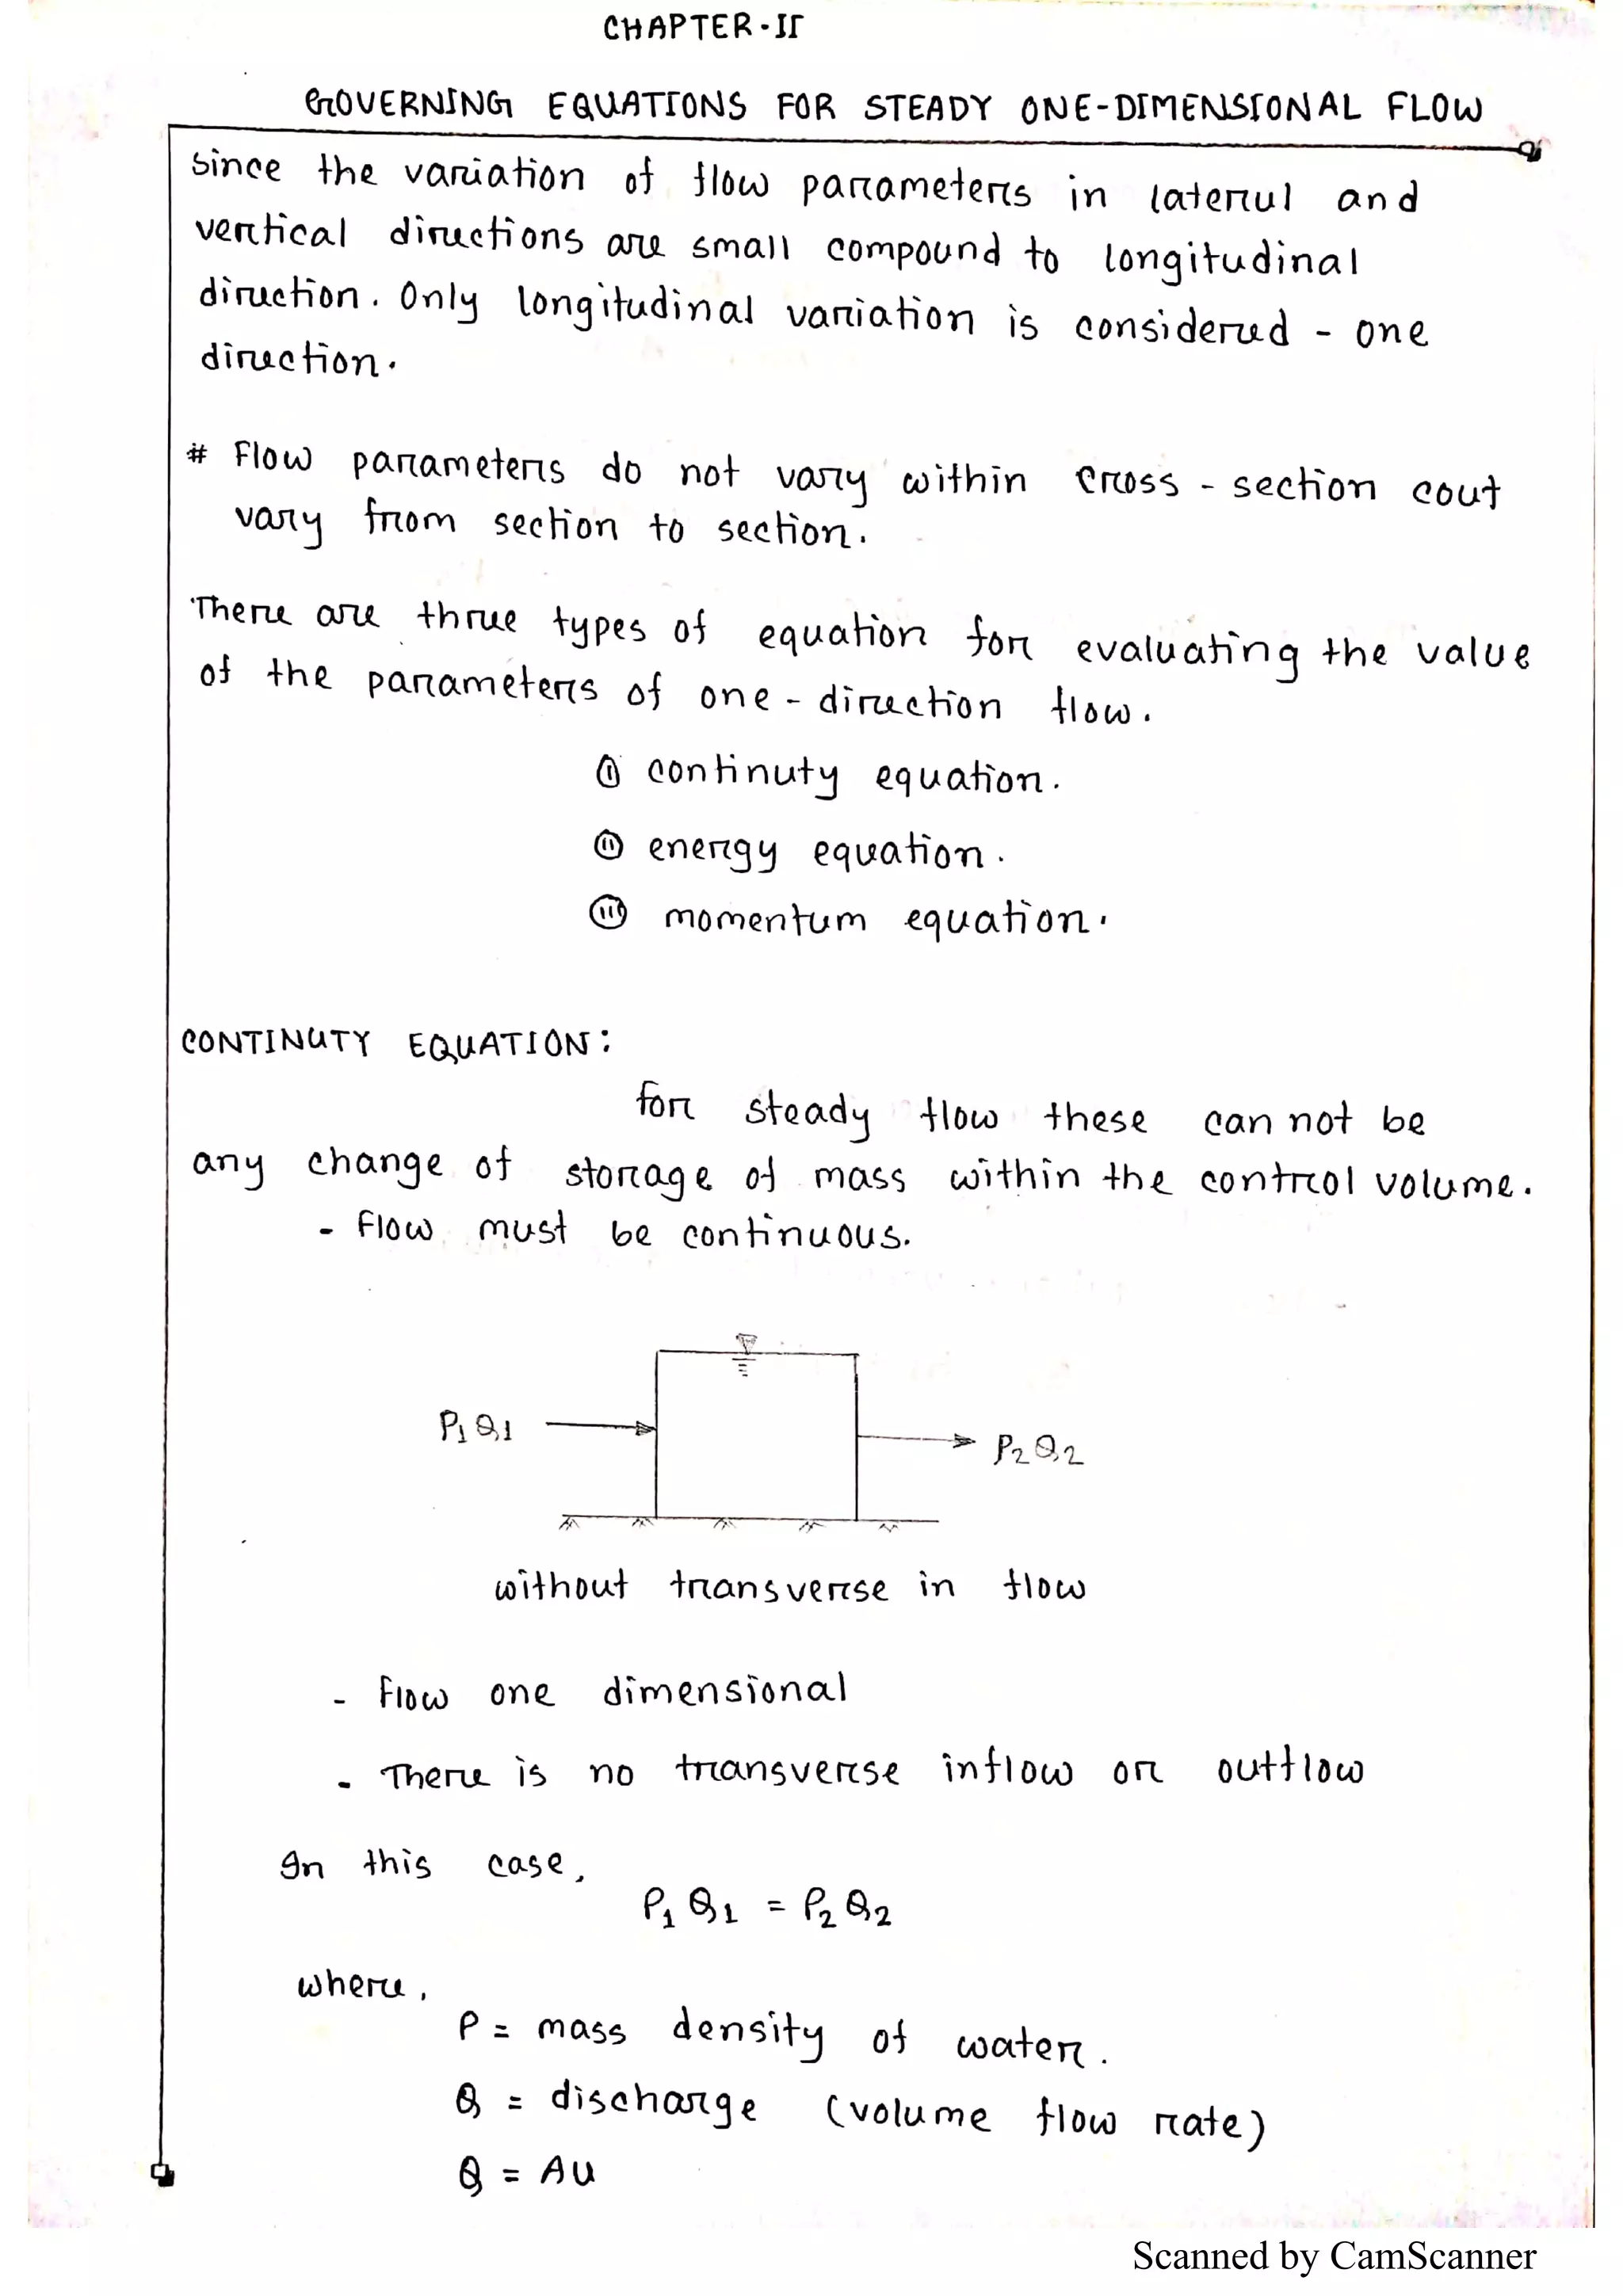 CHAPTER-II
GOVERNING EQUATIONS FOR STEADY ONE-DIMENSIONAL FLOW
Since the variation of flow parameters in laterul and
vertical directions are small compound to longitudinal
direction. Only longitudinal variation is considered - one
direction.
# Flow parameters do not vary within cross-section cout
vary from section to section.
There are three types of equation for evaluating the value
of the parameters of one-direction flow.
(i) continuty equation.
(ii) energy equation.
(iii) momentum equation.
CONTINUTY EQUATION:
for steady flow these can not be
any change of storage of mass within the control volume.
- Flow must be continuous.
P₁Q₁
P₂Q₂
without transverse in flow
- Flow one dimensional
- There is no transverse inflow or outflow
In this case,
P₁Q₁ = P₂Q₂
where,
P = mass density of water.
Q = discharge (volume flow rate)
Q = AU
Scanned by CamScanner